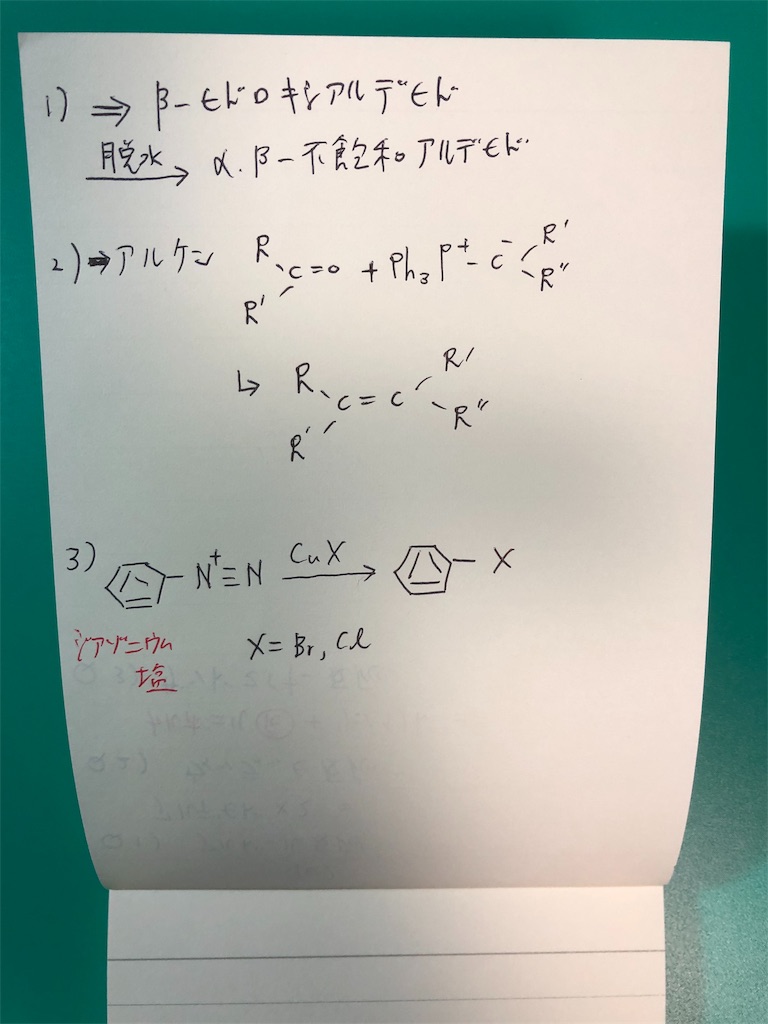 1) ⇒ β-ヒドロキシアルデヒド
脱水→ α.β-不飽和アルデヒド
2) → アルケン R R' C=O + Ph3P+-C- R' R''
↳ R R' C=C R' R''
3) -N+≡N CuX→ -X
ジアゾニウム
塩
X=Br, Cl